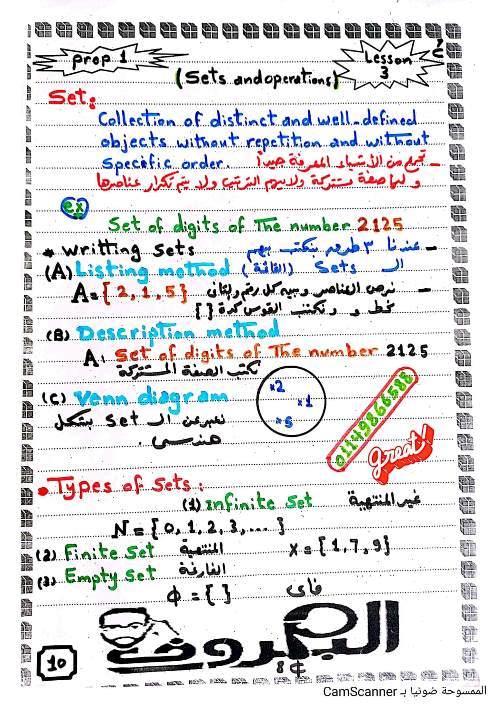 prop 1
Lesson 3
(Sets and operations)
Set:
Collection of distinct and well-defined
objects without repetition and without
Specific order.
- تجمع من الأشياء المعرفة جيداً
و لها صفة مشتركة ولا يهم الترتيب ولا يتم تكرار عناصرها
ex
Set of digits of The number 2125
* writting sets
- عندنا ٣ طرق بنكتب بهم
(A) Listing method (القائمة) الـ Sets
A = { 2, 1, 5 }
(B) Description method
A: Set of digits of The number 2125
نكتب الصفة المشتركة
(C) Venn diagram
×2
×1
×5
نعبر عن الـ Set بشكل
هندسي.
01149866588
Great!
• Types of Sets:
(1) Infinite set غير المنتهية
N = { 0, 1, 2, 3, ... }
(2) Finite Set المنتهية X = { 1, 7, 9 }
(3) Empty Set الفارغة
Φ = { } فاى
10
الممسوحة ضوئيا بـ CamScanner